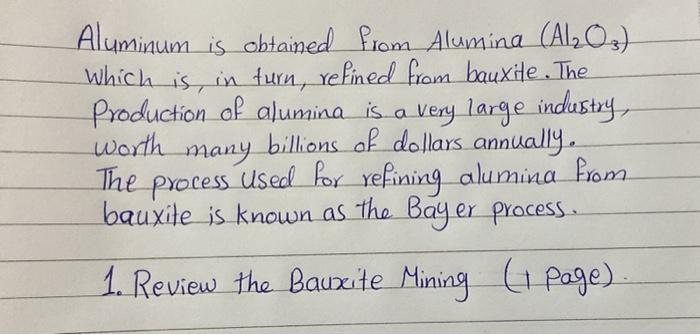 Aluminum is obtained from Alumina (Al₂O₃)
which is, in turn, refined from bauxite. The
Production of alumina is a very large industry,
worth many billions of dollars annually.
The process used for refining alumina from
bauxite is known as the Bayer process.
1. Review the Bauxite Mining (1 page).